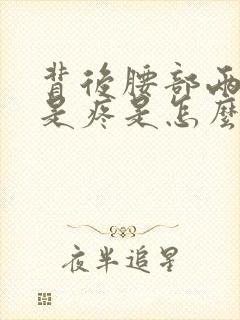 背後腰部兩
是疼是怎麼
夜半追星